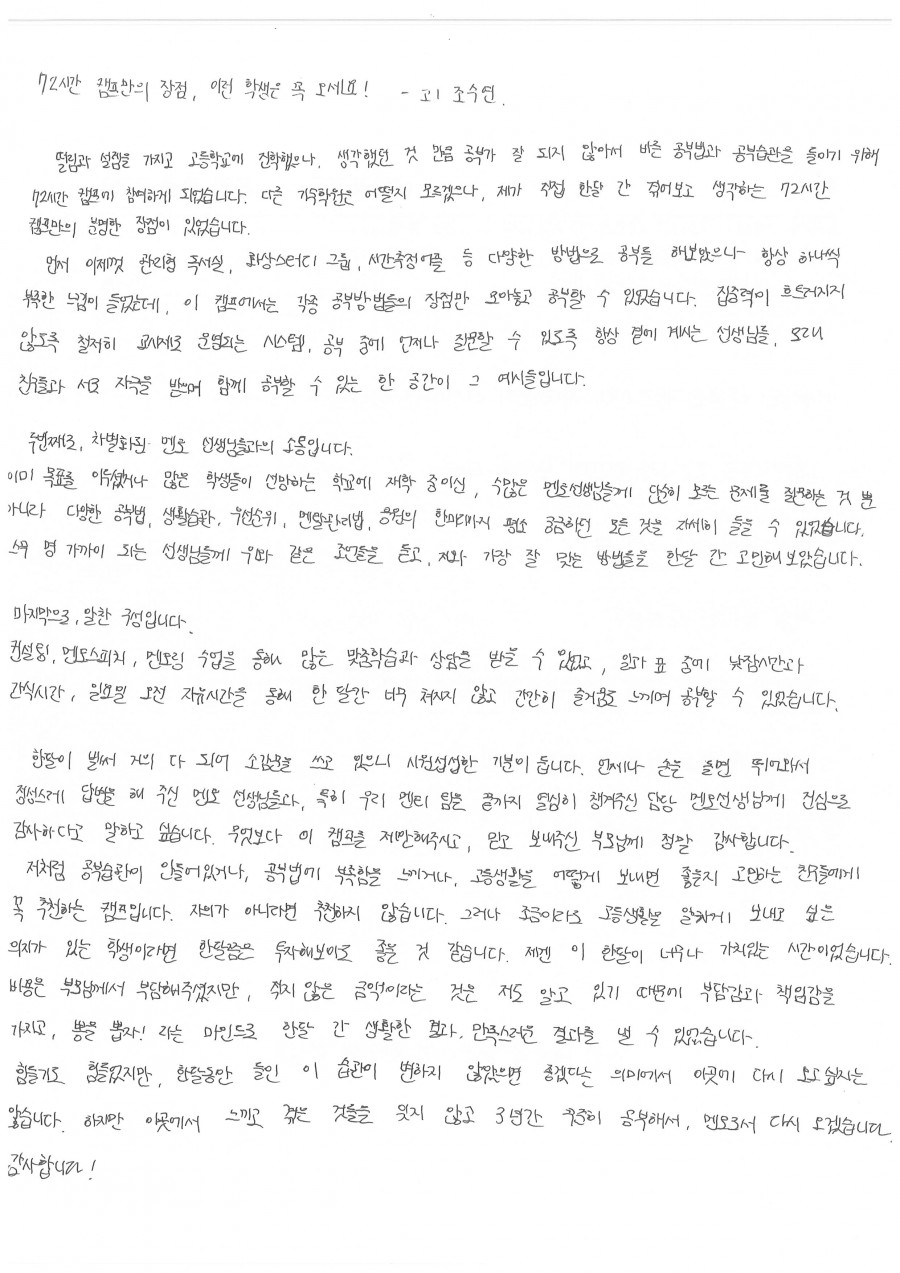 72시간 캠프만의 장점, 이런 학생은 꼭 오세요! - 고1 조수연.
떨림과 설렘을 가지고 고등학교에 진학했으나, 생각했던 것 만큼 공부가 잘 되지 않아서 바른 공부법과 공부습관을 들이기 위해
72시간 캠프에 참여하게 되었습니다. 다른 기숙학원은 어떨지 모르겠으나, 제가 직접 한달 간 겪어보고 생각하는 72시간
캠프만의 분명한 장점이 있었습니다.
먼저 이제껏 관리형 독서실, 화상스터디 그룹, 시간측정어플 등 다양한 방법으로 공부를 해보았으나 항상 하나씩
부족한 느낌이 들었는데, 이 캠프에서는 각종 공부방법들의 장점만 모아놓고 공부할 수 있었습니다. 집중력이 흐트러지지
않도록 철저히 교시제로 운영되는 시스템, 공부 중에 언제나 질문할 수 있도록 항상 곁에 계시는 선생님들, 또래
친구들과 서로 자극을 받으며 함께 공부할 수 있는 한 공간이 그 예시들입니다.
두번째로, 차별화된 멘토 선생님들과의 소통입니다.
이미 목표를 이루셨거나 많은 학생들이 선망하는 학교에 재학 중이신, 수많은 멘토선생님들께 단순히 모르는 문제를 질문하는 것 뿐
아니라 다양한 공부법, 생활습관, 우선순위, 멘탈관리법, 응원의 한마디까지 평소 궁금하던 모든 것을 자세히 들을 수 있었습니다.
스무 명 가까이 되는 선생님들께 우와 같은 조언들을 듣고, 저와 가장 잘 맞는 방법들을 한달 간 고민해보았습니다.
마지막으로, 알찬 구성입니다.
컨설팅, 멘토스피치, 멘토링 수업을 통해 많은 맞춤학습과 상담을 받을 수 있었고, 일과 표 중에 낮잠시간과
간식시간, 일요일 오전 자유시간을 통해 한 달간 너무 쳐지지 않고 간간히 즐거움도 느끼며 공부할 수 있었습니다.
한달이 벌써 거의 다 되어 소감문을 쓰고 있으니 시원섭섭한 기분이 듭니다. 언제나 손을 들면 뛰어와서
정성스레 답변을 해 주신 멘토 선생님들과, 특히 우리 멘티 팀을 끝까지 열심히 챙겨주신 담당 멘토선생님께 진심으로
감사하다고 말하고 싶습니다. 무엇보다 이 캠프를 제안해주시고, 믿고 보내주신 부모님께 정말 감사합니다.
저처럼 공부습관이 안들어있거나, 공부법에 부족함을 느끼거나, 고등생활을 어떻게 보내면 좋을지 고민하는 친구들에게
꼭 추천하는 캠프입니다. 자의가 아니라면 추천하지 않습니다. 그러나 조금이라도 고등생활을 알차게 보내고 싶은
의지가 있는 학생이라면 한달쯤은 투자해보아도 좋을 것 같습니다. 제겐 이 한달이 너무나 가치있는 시간이었습니다.
비용은 부모님께서 부담해주셨지만, 적지 않은 금액이라는 것은 저도 알고 있기 때문에 부담감과 책임감을
가지고, 뽕을 뽑자! 라는 마인드로 한달 간 생활한 결과, 만족스러운 결과를 낼 수 있었습니다.
힘들기도 힘들었지만, 한달동안 들인 이 습관이 변하지 않았으면 좋겠다는 의미에서 이곳에 다시 오고 싶지는
않습니다. 하지만 이곳에서 느끼고 겪은 것들을 잊지 않고 3년간 꾸준히 공부해서, 멘토로서 다시 오겠습니다.
감사합니다!